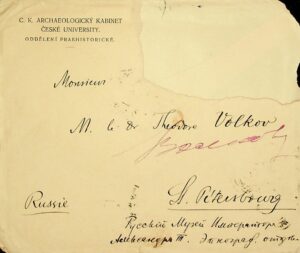 C. K. ARCHAEOLOGICKÝ KABINET
ČESKÉ UNIVERSITY.
ODDĚLENÍ PRAEHISTORICKÉ.
Monsieur
M. le Dr Théodore Volkov
Russie
St. Pétersbourg
Русскій Музей Императора
Александра III. Этнограф. отдѣл